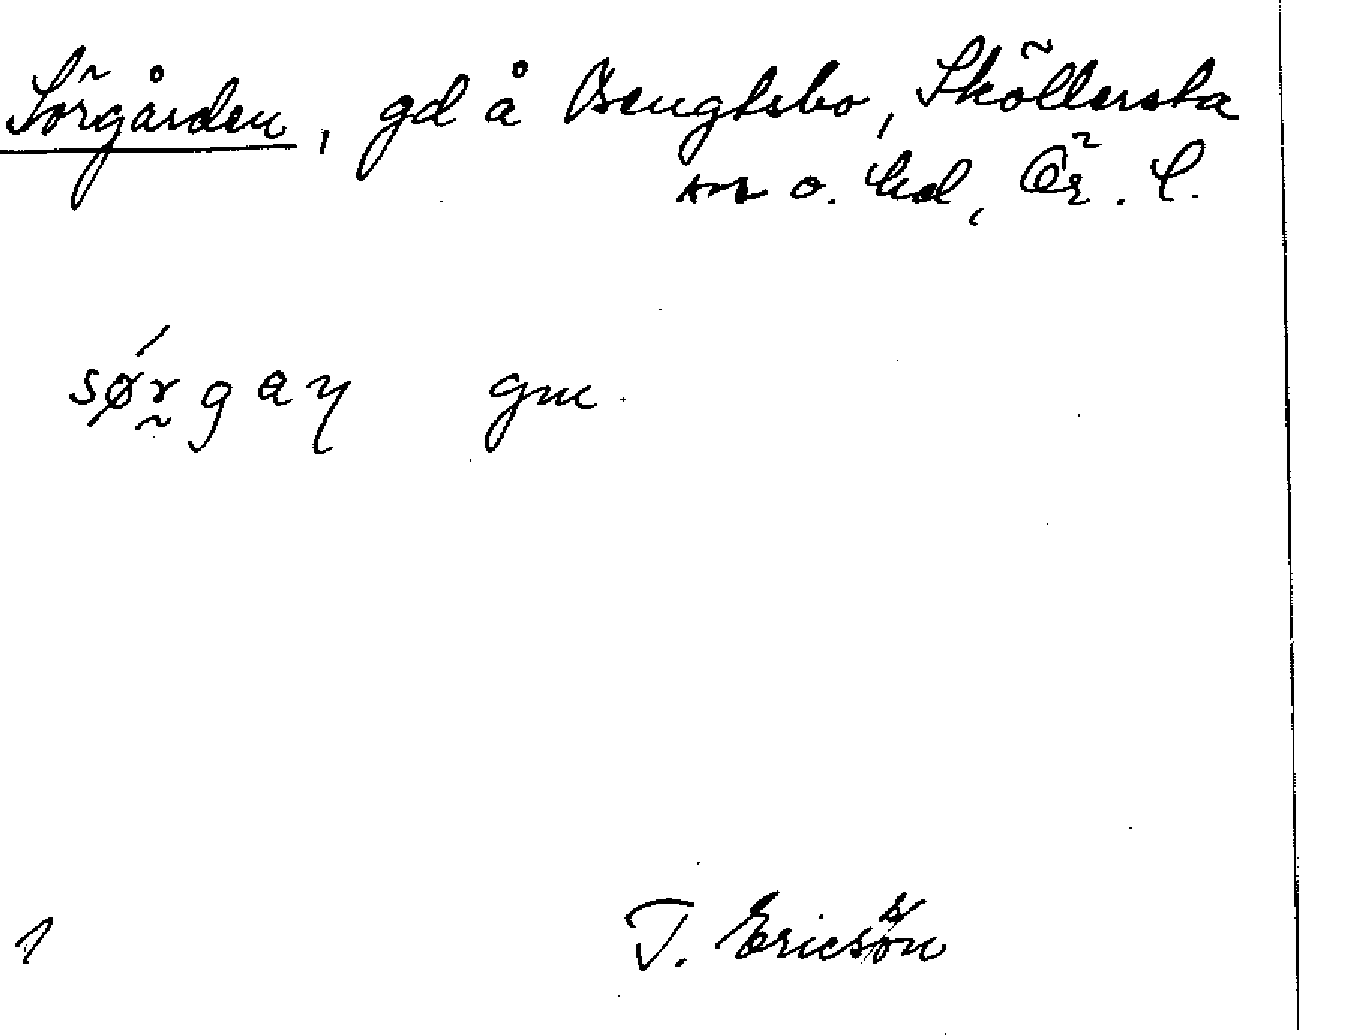 Sörgården, gd å Bengtsbo, Sköllersta
sn o. hd, Ör. l.
sø´r̰gaɳ gm.
1 T. Ericsson